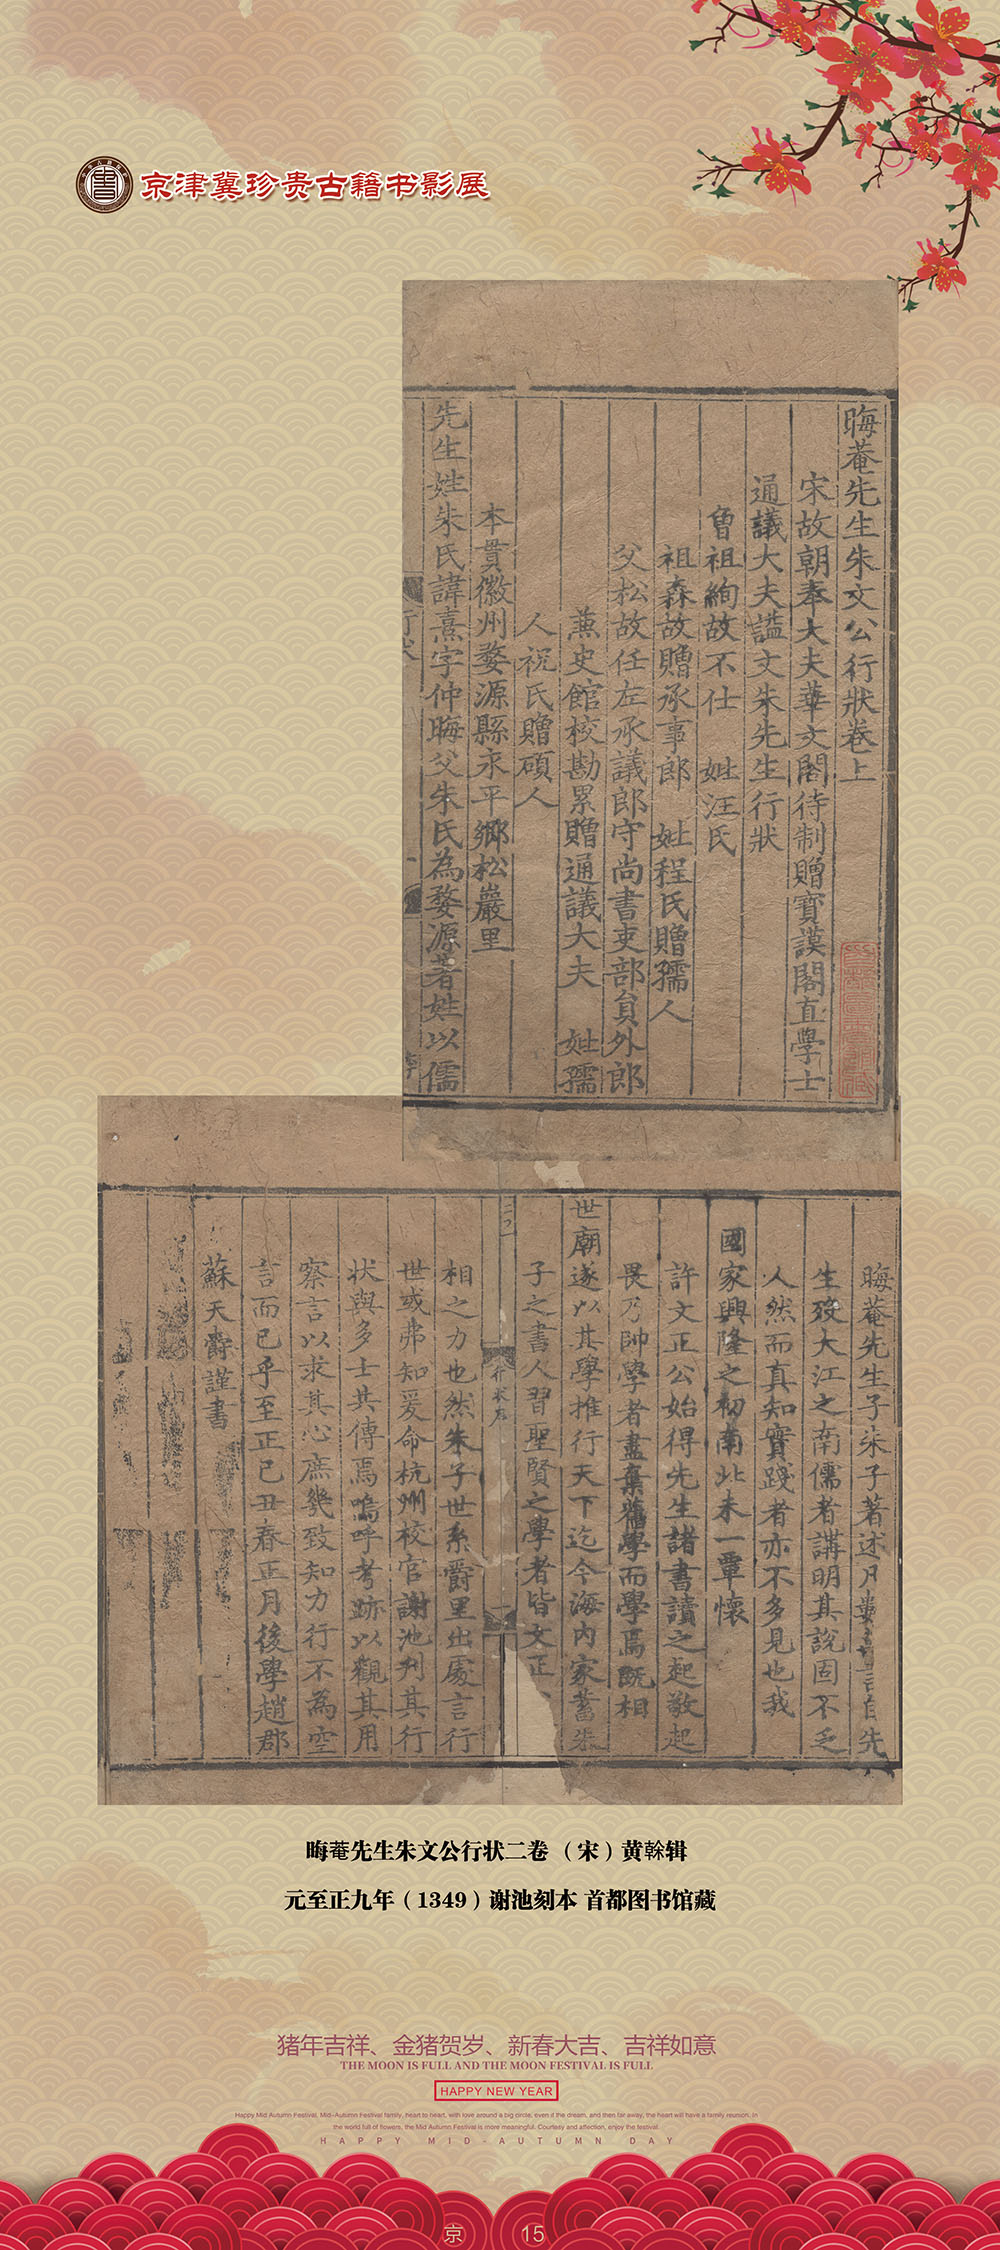 京津冀珍贵古籍书影展
晦菴先生朱文公行狀卷上
宋故朝奉大夫華文閣待制贈寶謨閣直學士
通議大夫謚文朱先生行狀
曾祖絢故不仕 妣汪氏
祖森故贈承事郎 妣程氏贈孺人
父松故任左承議郎守尚書吏部員外郎
兼史館校勘累贈通議大夫 妣孺
人祝氏贈碩人
本貫徽州婺源縣永平鄉松巖里
先生姓朱氏諱熹字仲晦父朱氏為婺源著姓以儒
晦菴先生子朱子著述
自先
生歿大江之南儒者講明其說固不乏
人然而真知實踐者亦不多見也我
國家興隆之初南北未一覃懷
許文正公始得先生諸書讀之起敬起
畏乃帥學者盡棄舊學而學焉既相
世廟遂以其學推行天下迄今海內家蓄朱
子之書人習聖賢之學者皆文正
行狀后
相之力也然朱子世系爵里出處言行
世或弗知爰命杭州校官謝池刊其行
狀與多士共傳焉嗚呼考跡以觀其用
察言以求其心庶幾致知力行不為空
言而已乎至正己丑春正月後學趙郡
蘇天爵謹書
晦菴先生朱文公行状二卷 （宋）黄榦辑
元至正九年（1349）谢池刻本 首都图书馆藏
猪年吉祥、金猪贺岁、新春大吉、吉祥如意
THE MOON IS FULL AND THE MOON FESTIVAL IS FULL
HAPPY NEW YEAR
Happy Mid Autumn Festival, Mid-Autumn Festival family, heart to heart, with love around a big circle, even if the dream, and then far away, the heart will have a family reunion. In
the world full of flowers, the Mid Autumn Festival is more meaningful. Courtesy and affection, enjoy the festival.
HAPPY MID-AUTUMN DAY
京 15